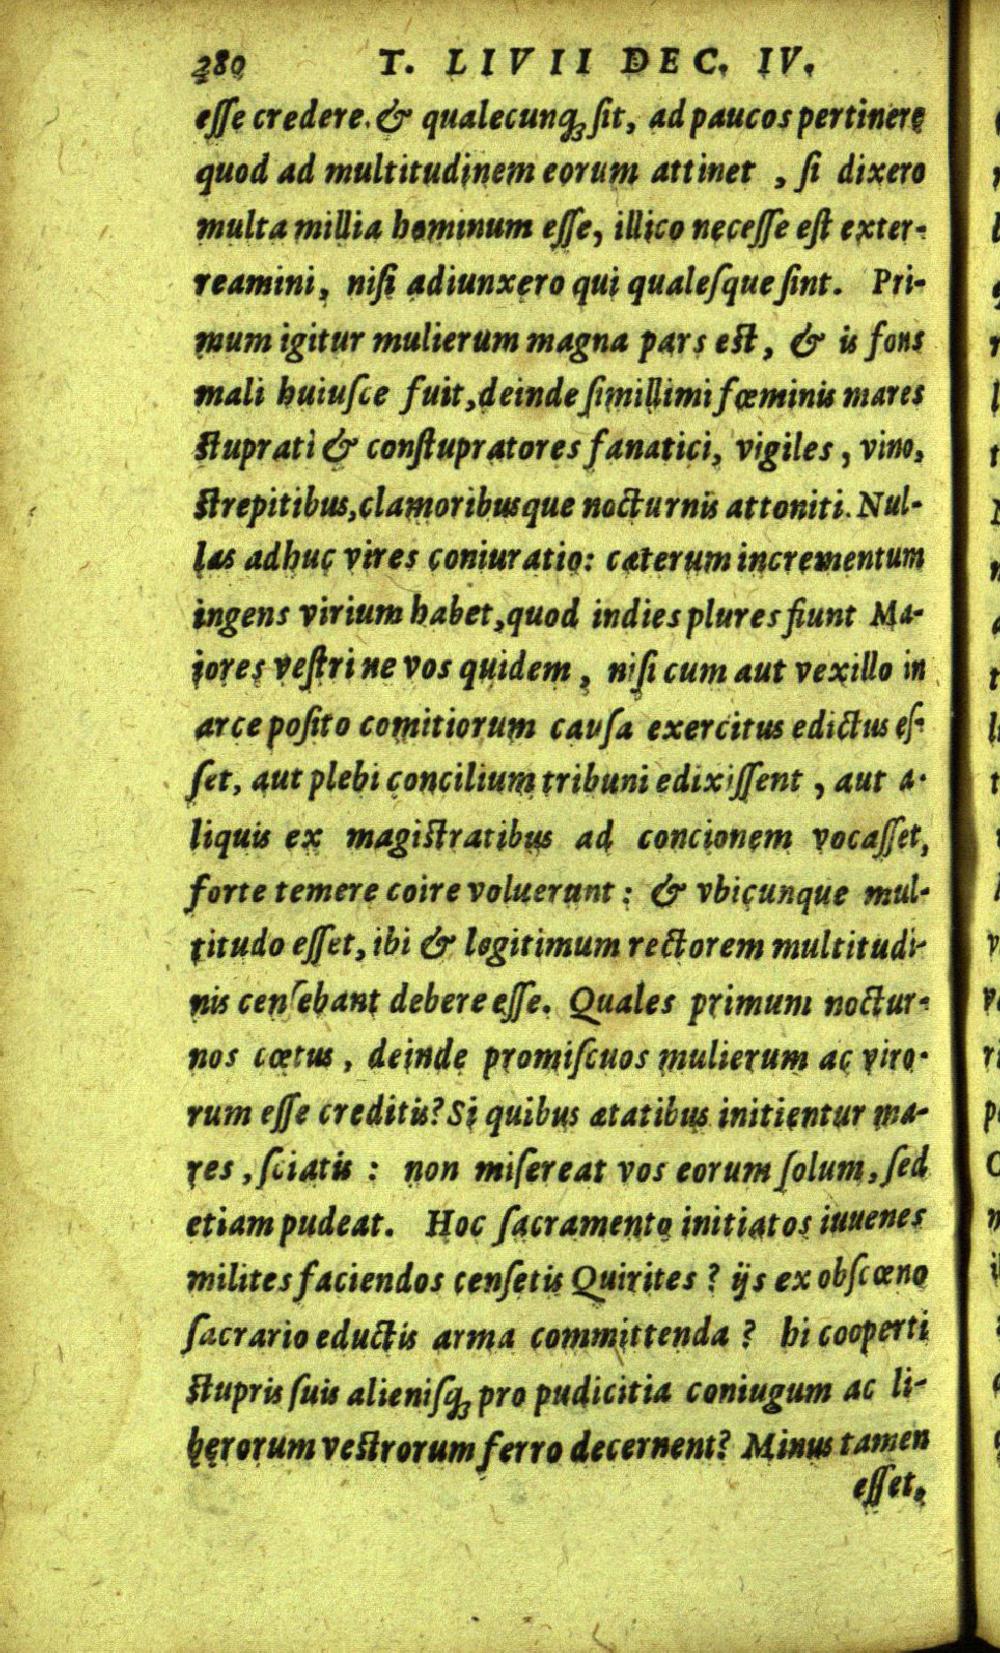 280 T. LIVII DEC. IV.
eſſe credere. & qualecunq; ſit, ad paucos pertinere
quod ad multitudinem eorum attinet , ſi dixero
multa millia hominum eſſe, illico neceſſe eſt exter-
reamini, niſi adiunxero qui qualeſque ſint. Pri-
mum igitur mulierum magna pars est, & is fons
mali huiuſce fuit, deinde ſimillimi fœminis mares
stuprati & conſtupratores fanatici, vigiles, vino,
strepitibus, clamoribusque nocturnis attoniti. Nul-
las adhuc vires coniuratio: cæterum incrementum
ingens virium habet, quod indies plures fiunt Ma-
iores veſtri ne vos quidem, niſi cum aut vexillo in
arce poſito comitiorum cauſa exercitus edictus eſ-
ſet, aut plebi concilium tribuni edixiſſent , aut a-
liquis ex magistratibus ad concionem vocaſſet,
forte temere coire voluerunt : & vbicunque mul-
titudo eſſet, ibi & legitimum rectorem multitudi-
nis cenſebant debere eſſe. Quales primum noctur-
nos cœtus, deinde promiſcuos mulierum ac viro-
rum eſſe creditis? Si quibus ætatibus initientur ma-
res, ſciatis : non miſereat vos eorum ſolum, ſed
etiam pudeat. Hoc ſacramento initiatos iuuenes
milites faciendos cenſetis Quirites ? ijs ex obſcœno
ſacrario eductis arma committenda ? hi cooperti
stupris ſuis alieniſq; pro pudicitia coniugum ac li-
berorum vestrorum ferro decernent? Minus tamen
eſſet,